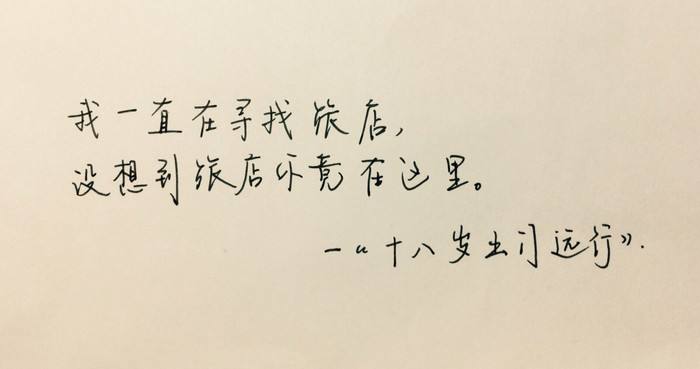 我一直在寻找旅店，
没想到旅店你竟在这里。
—《十八岁出门远行》.